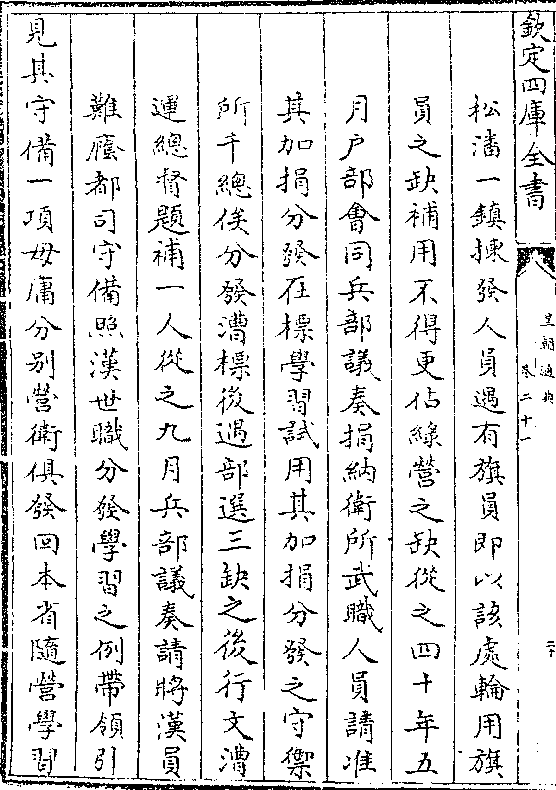 欽定四庫全書
皇朝通典
卷二十一
松潘一鎮揀發人員遇有旗員即以該處輪用旗
員之缺補用不得更佔綠營之缺從之四十年五
月户部會同兵部議奏捐納衛所武職人員請准
其加捐分發在標學習試用其加捐分發之守禦
所千總俟分發漕標後遇部選三缺之後行文漕
運總督題補一人從之九月兵部議奏請將漢員
難廕都司守備照漢世職分發學習之例帶領引
見其守備一項毋庸分別營衛俱發回本省隨營學習